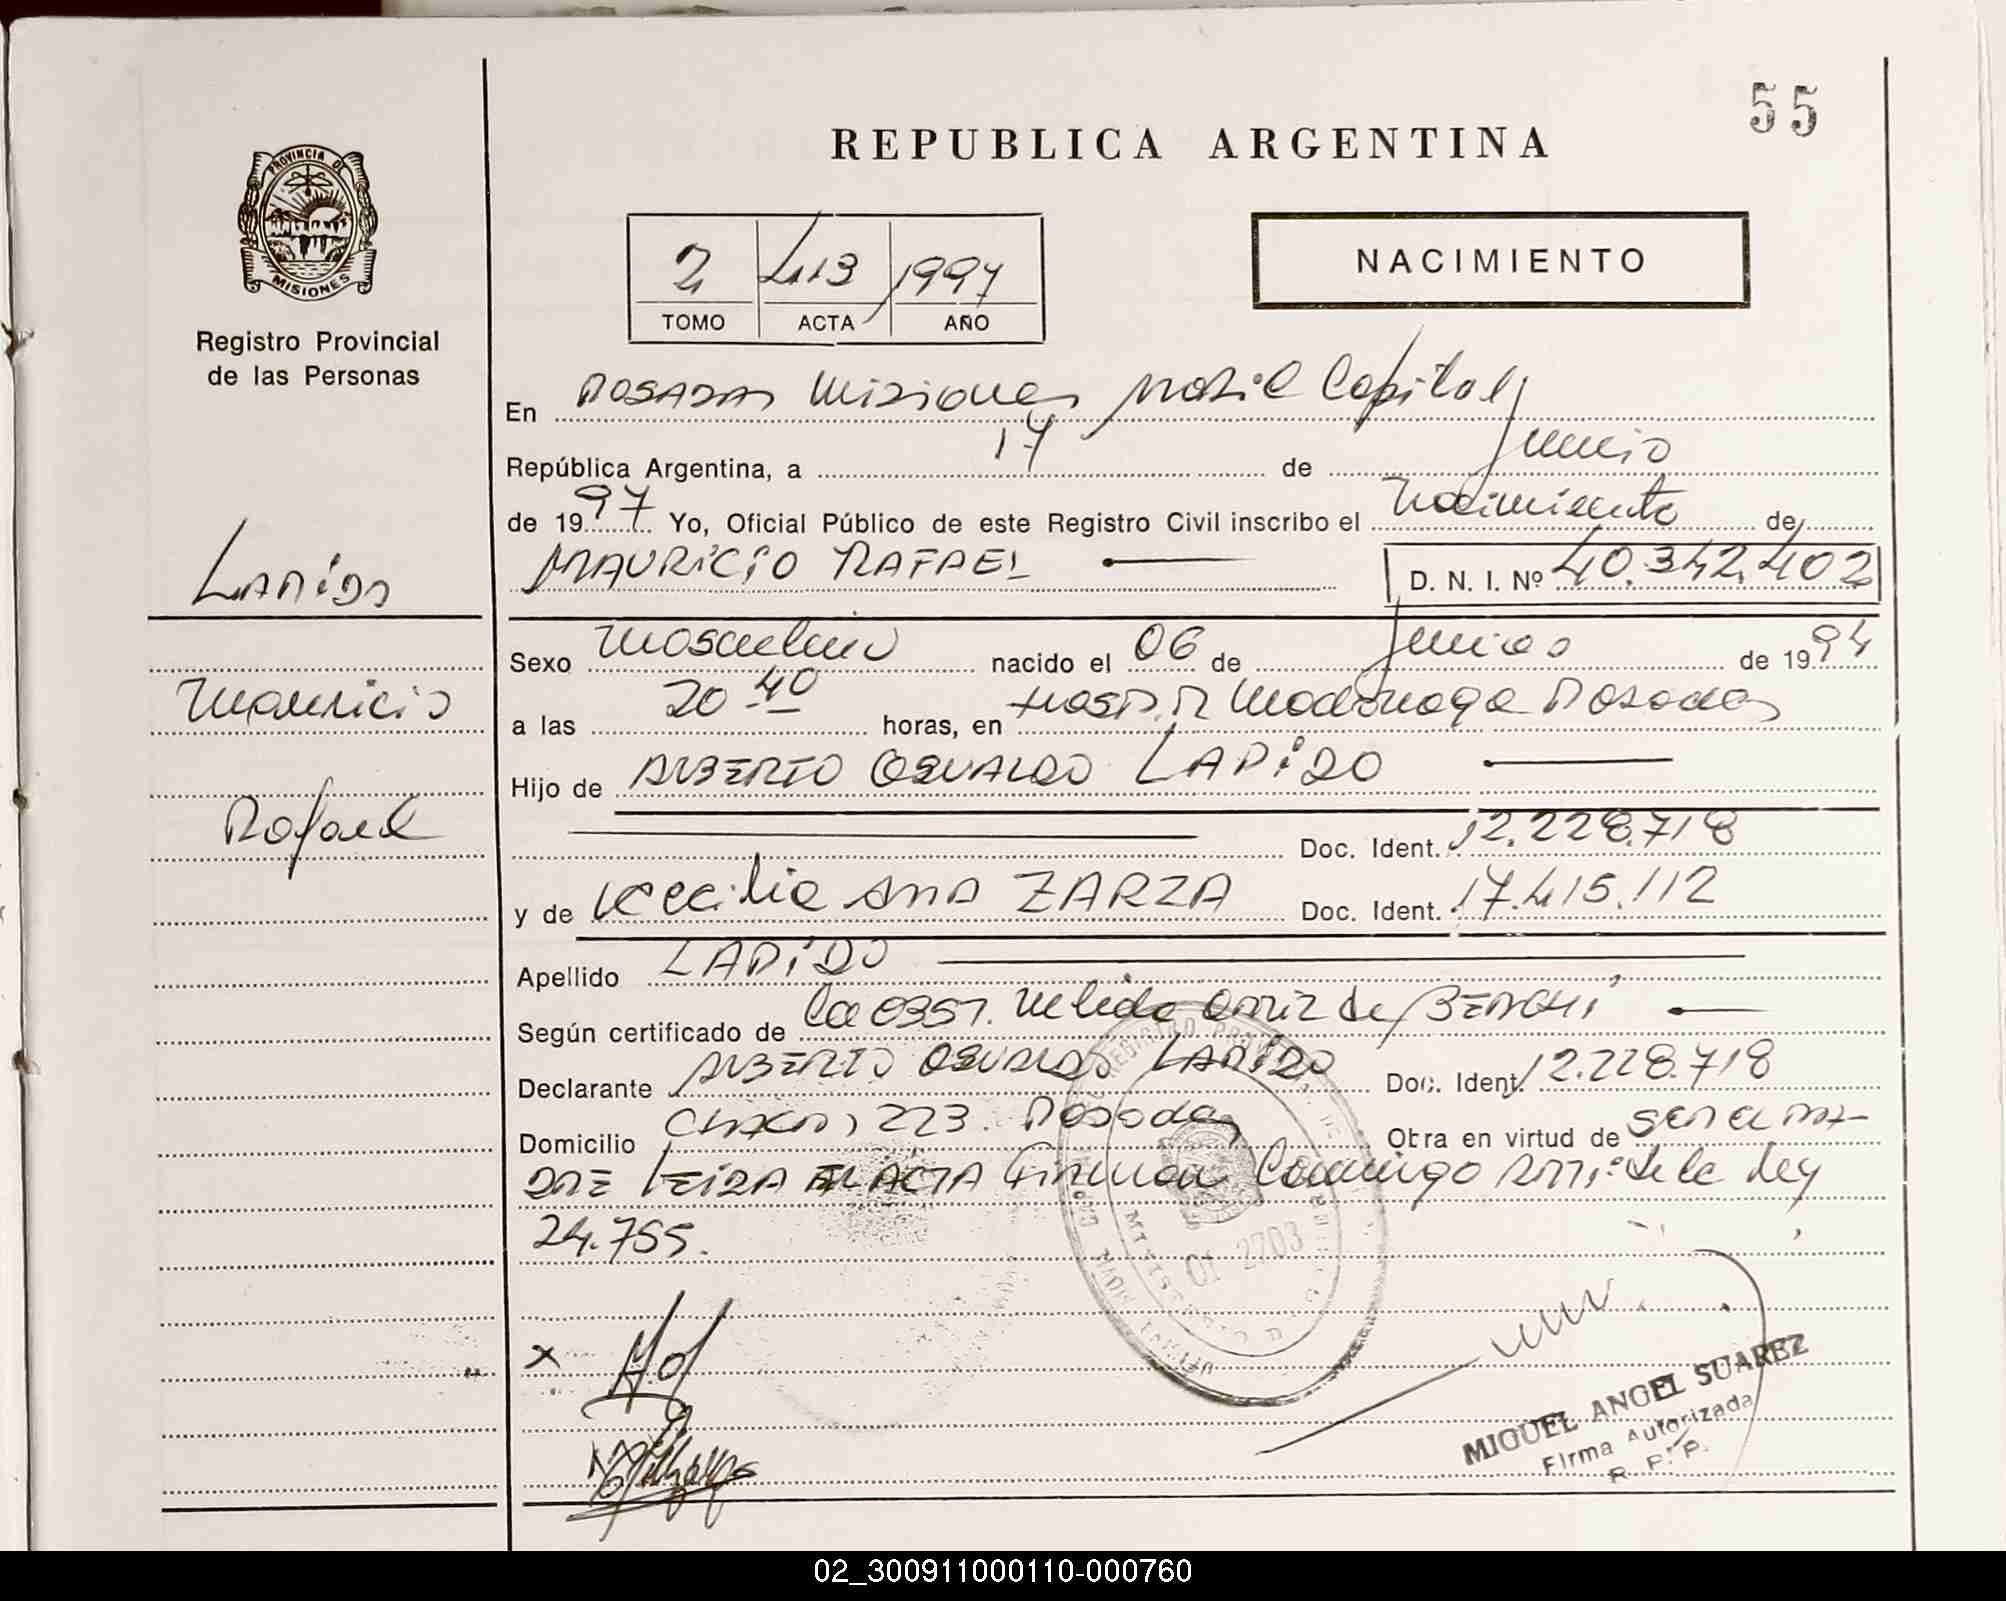 55
REPUBLICA ARGENTINA
PROVINCIA DE
MISIONES
Registro Provincial
de las Personas
2 413 1997
TOMO ACTA AÑO
NACIMIENTO
En POSADAS Misiones Capital
República Argentina, a 17 de Junio
de 1997 Yo, Oficial Público de este Registro Civil inscribo el Nacimiento de
MAURICIO RAFAEL D. N. I. Nº 40.342.402
LAPIDO
Sexo Masculino nacido el 06 de Junio de 1994
Mauricio
a las 20 40 horas, en Hosp. R Madariaga Posadas
Hijo de ALBERTO OSVALDO LAPIDO
Rafael
Doc. Ident. 12.228.718
y de Cecilia ANA ZARZA Doc. Ident. 17.415.112
Apellido LAPIDO
Según certificado de La OBST. Nelida de
Declarante ALBERTO OSVALDO LAPIDO Doc. Ident. 12.228.718
Domicilio 223. Posadas Otra en virtud de ser el PA-
DRE LEIDA EL ACTA Firman Conmigo de la Ley
24.755.
x
MIGUEL ANGEL SUAREZ
Firma Autorizada
R. P. P.
02_300911000110-000760